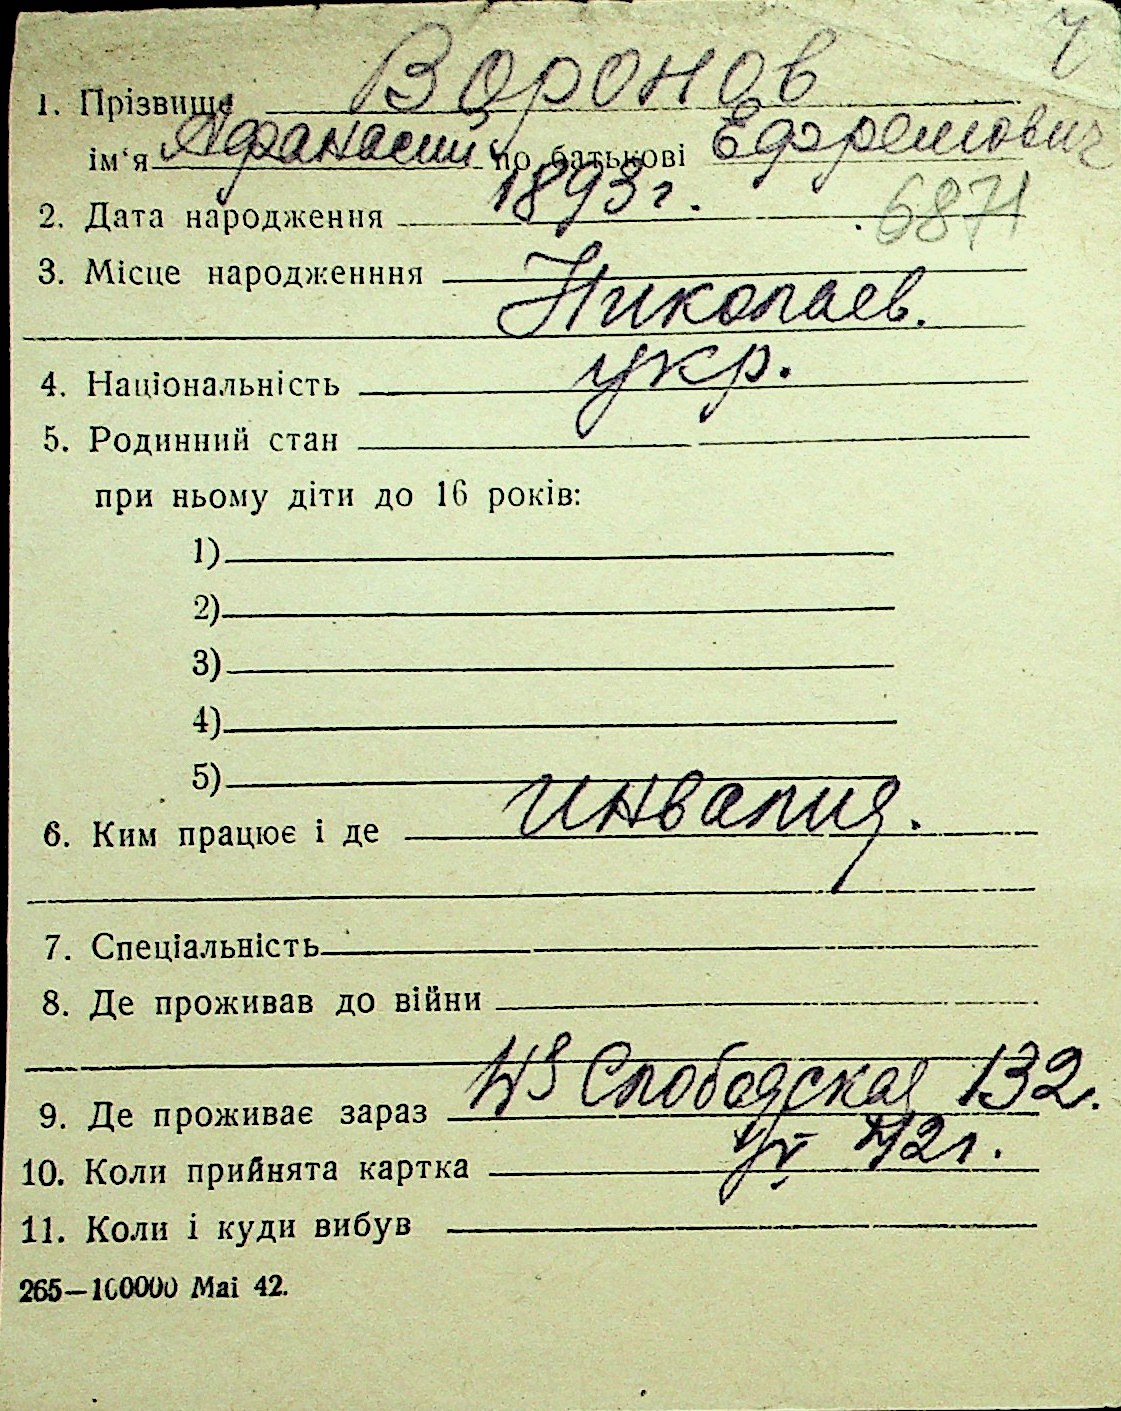 Ч
1. Прізвище Воронов
ім'я Афанасий по батькові Ефремович
2. Дата народження 1893 г. 6871
3. Місце народженння
Николаев.
4. Національність укр.
5. Родинний стан
при ньому діти до 16 років:
1)
2)
3)
4)
5)
6. Ким працює і де инвалид.
7. Спеціальність
8. Де проживав до війни
9. Де проживає зараз Слободская 132.
10. Коли прийнята картка 42 г.
11. Коли і куди вибув
265—100000 Mai 42.